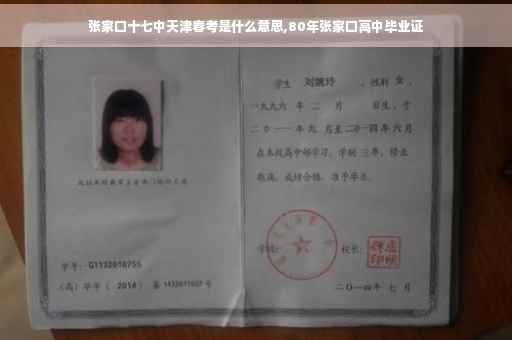 张家口十七中天津春考是什么意思,80年张家口高中毕业证
学生 刘婉玲 ,性别 女 ,
一九九六 年 二 月 日生,于
二〇一一年 九 月至 二〇一四年 六 月
在本校高中部学习,学制 三 年,修业
期满,成绩合格,准予毕业。
学号: G1132010755
学校:
校长:
(高)毕字( 2014 )第 1432011607 号
二〇一四年 七 月